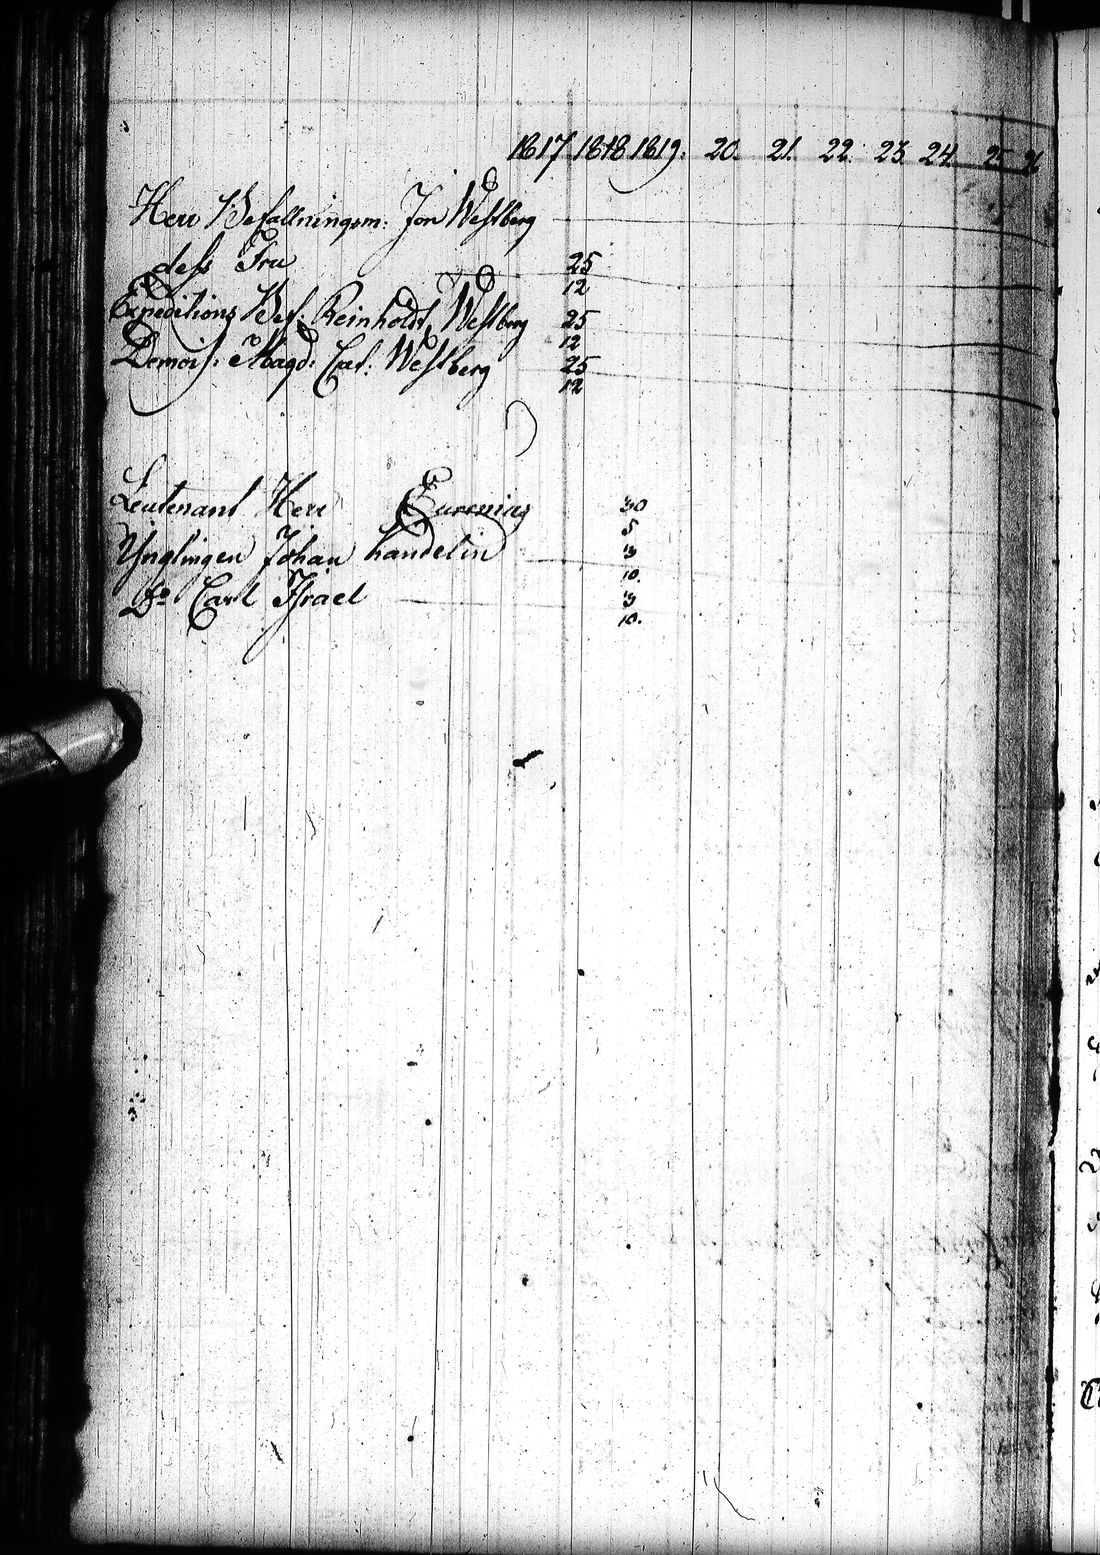 1817 1818 1819. 20. 21. 22. 23. 24. 25 26
Herr Befallningsm: Jon Westberg
dess Fru 25
12
Expeditions Bef: Reinholdt Westberg 25
12
Demois: Magd: Cat: Westberg 25
12
Leutenant Herr 30
5
Ynglingen Johan handelin 3
10.
Do Carl Israel 3
10.